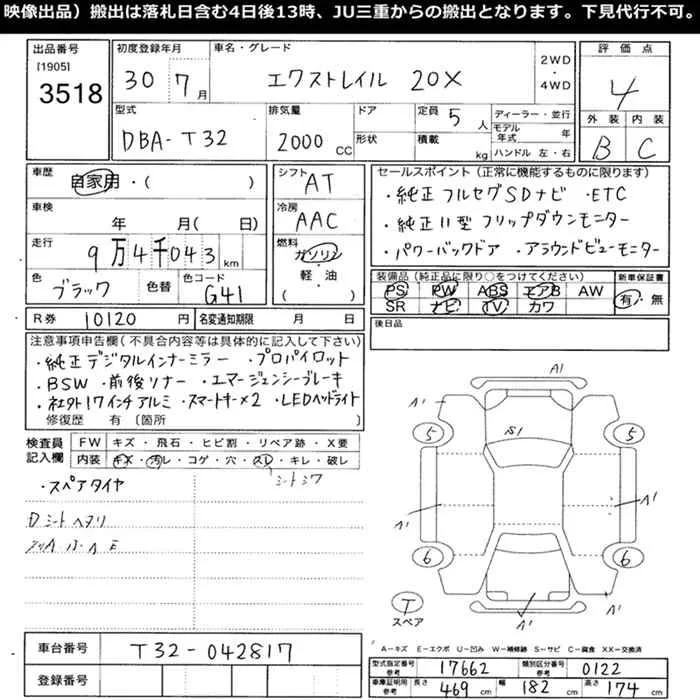 映像出品）搬出は落札日含む4日後13時、JU三重からの搬出となります。下見代行不可。
出品番号 [1905] 3518
初度登録年月 30 7月
車名・グレード エクストレイル 20X
2WD・4WD
評価点 4
外装 B 内装 C
型式 DBA-T32
排気量 2000 CC
ドア 形状
定員 5人 積載 kg
ディーラー・並行
モデル年式 年
ハンドル 左・右
車歴 自家用・( )
シフト AT
車検 年 月( 日)
冷房 AAC
走行 9万4千043 km
燃料 ガソリン 軽・油 ( )
色 ブラック 色替
色コード G41
R券 10120 円
名変通知期限 月 日
セールスポイント（正常に機能するものに限ります）
・純正フルセグSDナビ ・ETC
・純正11型フリップダウンモニター
・パワーバックドア ・アラウンドビューモニター
装備品（純正品に限り○をつけてください）
PS PW ABS エアB AW
SR ナビ TV カワ
新車保証書 有・無
後日品
注意事項申告欄（不具合内容等は具体的に記入して下さい）
・純正デジタルインナーミラー ・プロパイロット
・BSW ・前後ソナー ・エマージェンシーブレーキ
・社外17インチアルミ ・スマートキー×2 ・LEDヘッドライト
修復歴 有〔箇所 〕
検査員記入欄
FW キズ・飛石・ヒビ割・リペア跡・X要
内装 キズ・汚レ・コゲ・穴・スレ・キレ・破レ
シートシワ
・スペアタイヤ
Dシートヘタリ
A1
A1 A1
5 S1 5
A1 A1
6 6
T スペア
A1 A1
A－キズ E－エクボ U－凹み W－補修跡 S－サビ C－腐食 XX－交換済
車台番号 T32-042817
登録番号
型式指定番号 参考 17662
類別区分番号 参考 0122
車庫証明用 参考 長さ 469 cm 幅 182 cm 高さ 174 cm